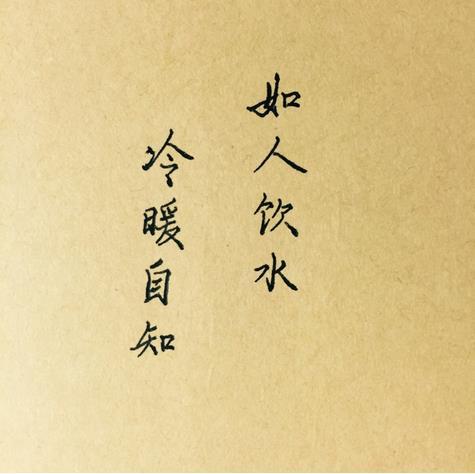 如人饮水
冷暖自知